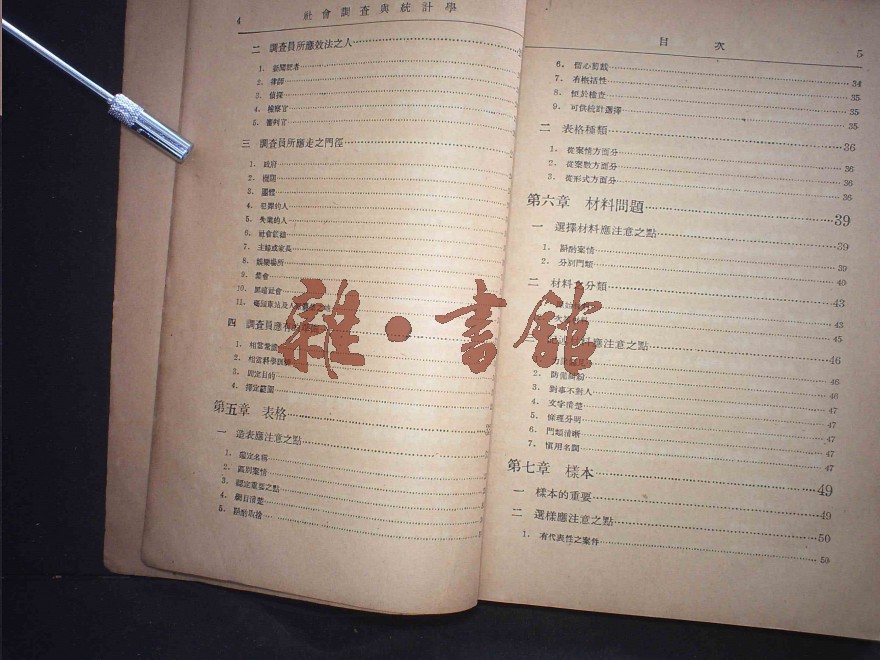 4 社會調查與統計學
二 調查員所應效法之人
1. 新聞記者
2. 律師
3. 偵探
4. 檢察官
5. 審判官
三 調查員所應走之門徑
1. 政府
2. 機關
3. 團體
4. 犯罪的人
5. 失業的人
6. 社會領袖
7. 主婦或家長
8. 娛樂場所
9. 集會
10. 黑暗社會
11.
四 調查員應有的
1. 相當常識
2. 相當科學訓練
3. 固定目的
4. 擇定範圍
第五章 表格
一 造表應注意之點
1. 確定名稱
2. 識別案情
3. 認定重要之點
4. 綱目清楚
5. 斟酌取捨
目 次 5
6. 留心剪裁 34
7. 有樹活性 35
8. 便於檢查 35
9. 可供統計選擇 35
二 表格種類 36
1. 從案情方面分 36
2. 從案數方面分 36
3. 從形式方面分 36
第六章 材料問題 39
一 選擇材料應注意之點 39
1. 斟酌案情 39
2. 分別門類 40
二 材料之分類 43
43
45
應注意之點 46
46
2. 防備 46
3. 對事不對人 46
4. 文字清楚 47
5. 條理分明 47
6. 門類清晰 47
7. 慎用名詞 47
第七章 樣本 49
一 樣本的重要 49
二 選樣應注意之點 50
1. 有代表性之案件 50
雜·書館